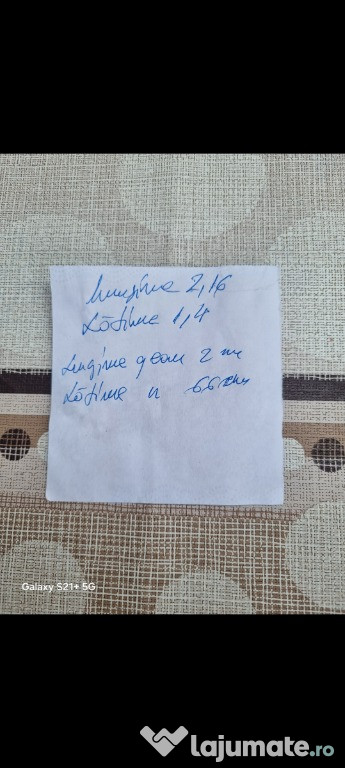 Lungime 2,16
Lățime 1,4
Lungime geam 2 m
Lățime n 66 cm
Galaxy S21+ 5G
lajumate.ro